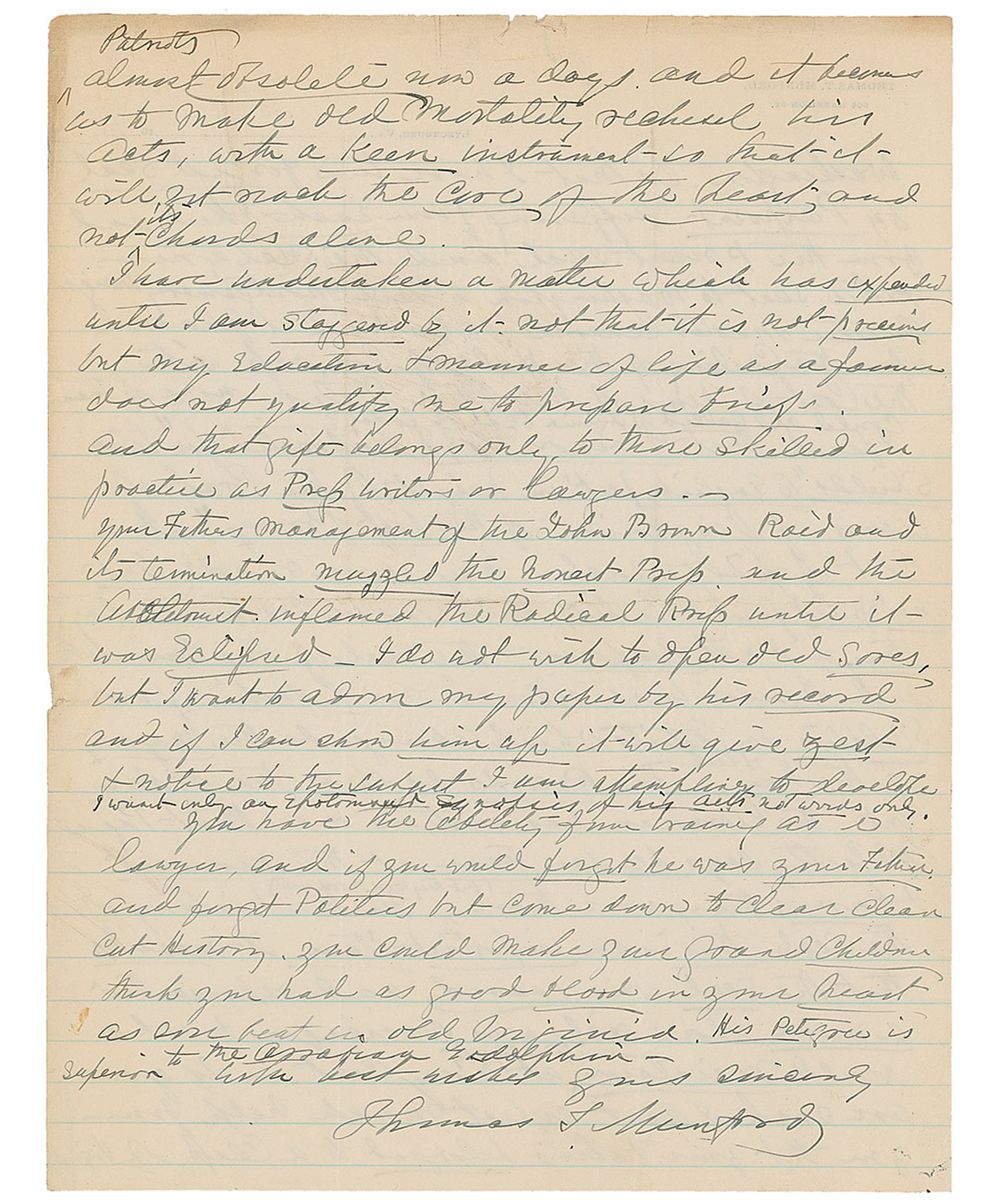 Patriots
almost obsolete now a days. and it becomes
us to make old Mortality rechisel his
Acts, with a Keen instrument so that it
will yet reach the Core of the heart, and
not its Chords alone.
I have undertaken a matter which has expanded
until I am staggered by it. not that it is not precious
but my Education & manner of life as a farmer
does not qualify me to prepare briefs.
and that gift belongs only to those skilled in
practice as Press writers or lawyers. —
your Fathers management of the John Brown Raid and
its termination muzzled the honest Press. and the
inflamed the Radical Press until it
was Eclipsed — I do not wish to open old Sores,
but I want to adorn my paper by his record
and if I can show him up it will give zest
& notice to the subject I am attempting to develope
I want only an Synopsis of his acts not words only.
you have the ability from training as a
lawyer, and if you would forget he was your Father.
and forget Politics but come down to clear clean
Cut History. you could make your grand Children
think you had as good blood in your heart
as ever beat in old Virginia. His Petigree is
superior to the
with best wishes yours sincerely
Thomas T Munford